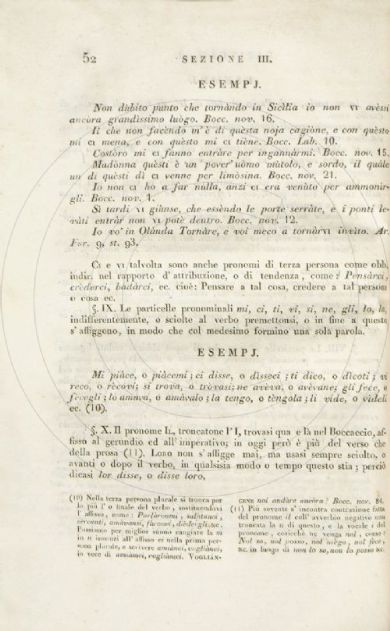 52 SEZIONE III.
ESEMPJ.
Non dùbito punto che tornàndo in Sicìlia io non vi avèssi
ancòra grandìssimo luògo. Bocc. nov. 16.
Il che non facèndo m'è di quèsta noja cagiòne, e con quèsto
mi ci mena, e con quèsto mi ci tiène. Bocc. Lab. 10.
Costòro mi ci fanno entràre per ingannàrmi. Bocc. nov. 15.
Madònna quèsti è un pover' uòmo mùtolo, e sordo, il quàle
un di quèsti dì ci venne per limòsina. Bocc. nov. 21.
Io non ci ho a far nulla, anzi ci era venùto per ammonir-
gli. Bocc. nov. 4.
Sì tardi vi giùnse, che essèndo le porte serràte, e i ponti le-
vàti entràr non vi potè dentro. Bocc. nov. 12.
Io vo' in Olànda Tornàre, e voi meco a tornàrvi invìto. Ar.
Fur. 9, st. 93.
Ci e vi talvolta sono anche pronomi di terza persona come obb.
indir. nel rapporto d'attribuzione, o di tendenza, come: Pensàrci,
crèderci, badàrci, ec. cioè: Pensare a tal cosa, credere a tal persona
o cosa ec.
§. IX. Le particelle pronominali mi, ci, ti, vi, si, ne, gli, lo, la,
indifferentemente, o sciolte al verbo premettonsi, o in fine a questo
s'affiggono, in modo che col medesimo formino una sola parola.
ESEMPJ.
Mi piàce, o piàcemi; ci disse, o dìsseci; ti dico, o dìcoti; vi
reco, o rècovi; si trova, o tròvasi; ne avèva, o avèvane; gli fece, o
fècegli; lo amàva, o amàvalo; la tengo, o tèngola; li vide, o vìdeli
ec. (10).
§. X. Il pronome li, troncatone l'I, trovasi qua e là nel Boccaccio, af-
fisso al gerundio ed all'imperativo; in oggi però è più del verso che
della prosa (11). Loro non s'affigge mai, ma usasi sempre sciolto, o
avanti o dopo il verbo, in qualsisia modo o tempo questo stia; perciò
dicasi lor disse, o disse loro,
(10) Nella terza persona plurale si tronca per
lo più l'o finale del verbo, sostituendovi
l'affisso, come:
l'usiamo per miglior suono cangiare la m
in n innanzi all'affisso e nella prima per-
sona plurale, e scrivere
in vece di
cane noi andàre ancòra? Bocc. nov. 84.
(11) Più sovente s'incontra contrazione fatta
del pronome il coll'avverbio negativo non
troncata la n di questo, e la vocale i del
pronome, cosicchè ne venga nol, come:
Nol so, nol posso, nol nègo, nol fece,
ec. in luogo di non lo so, non lo posso ec.